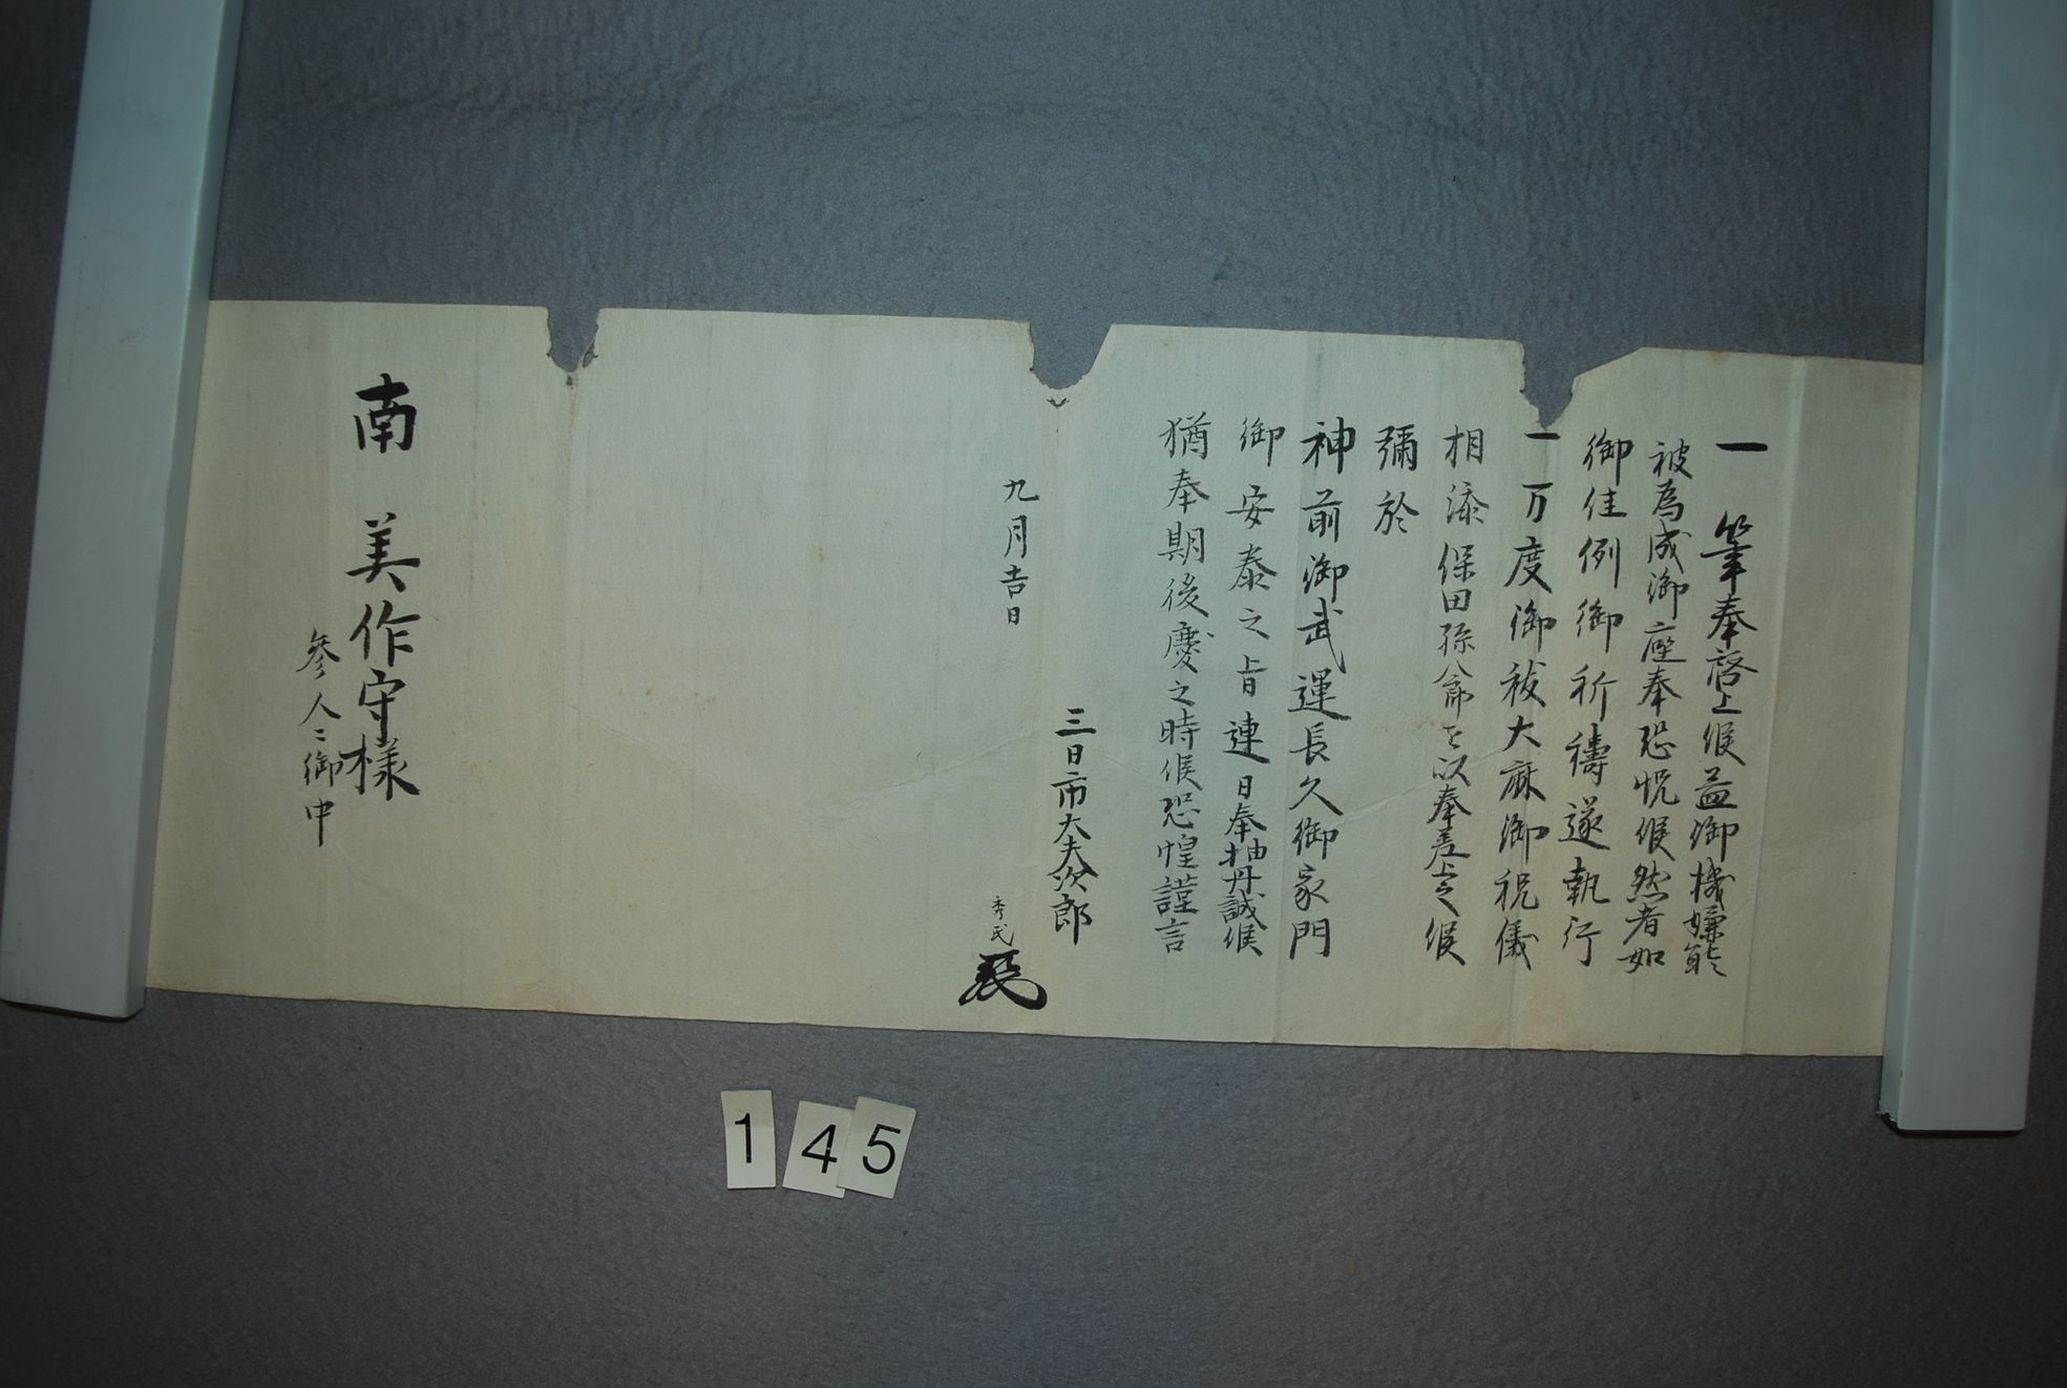 一筆奉啓上候益御機嫌能
被為成御座奉恐悦候然者如
御佳例御祈禱遂執行
一万度御祓大麻御祝儀
相添保田孫八郎を以奉差上之候
彌於
神前御武運長久御家門
御安泰之旨連日奉抽丹誠候
猶奉期後慶之時候恐惶謹言
三日市大夫次郎
九月吉日
秀
南美作守様
参人々御中
145